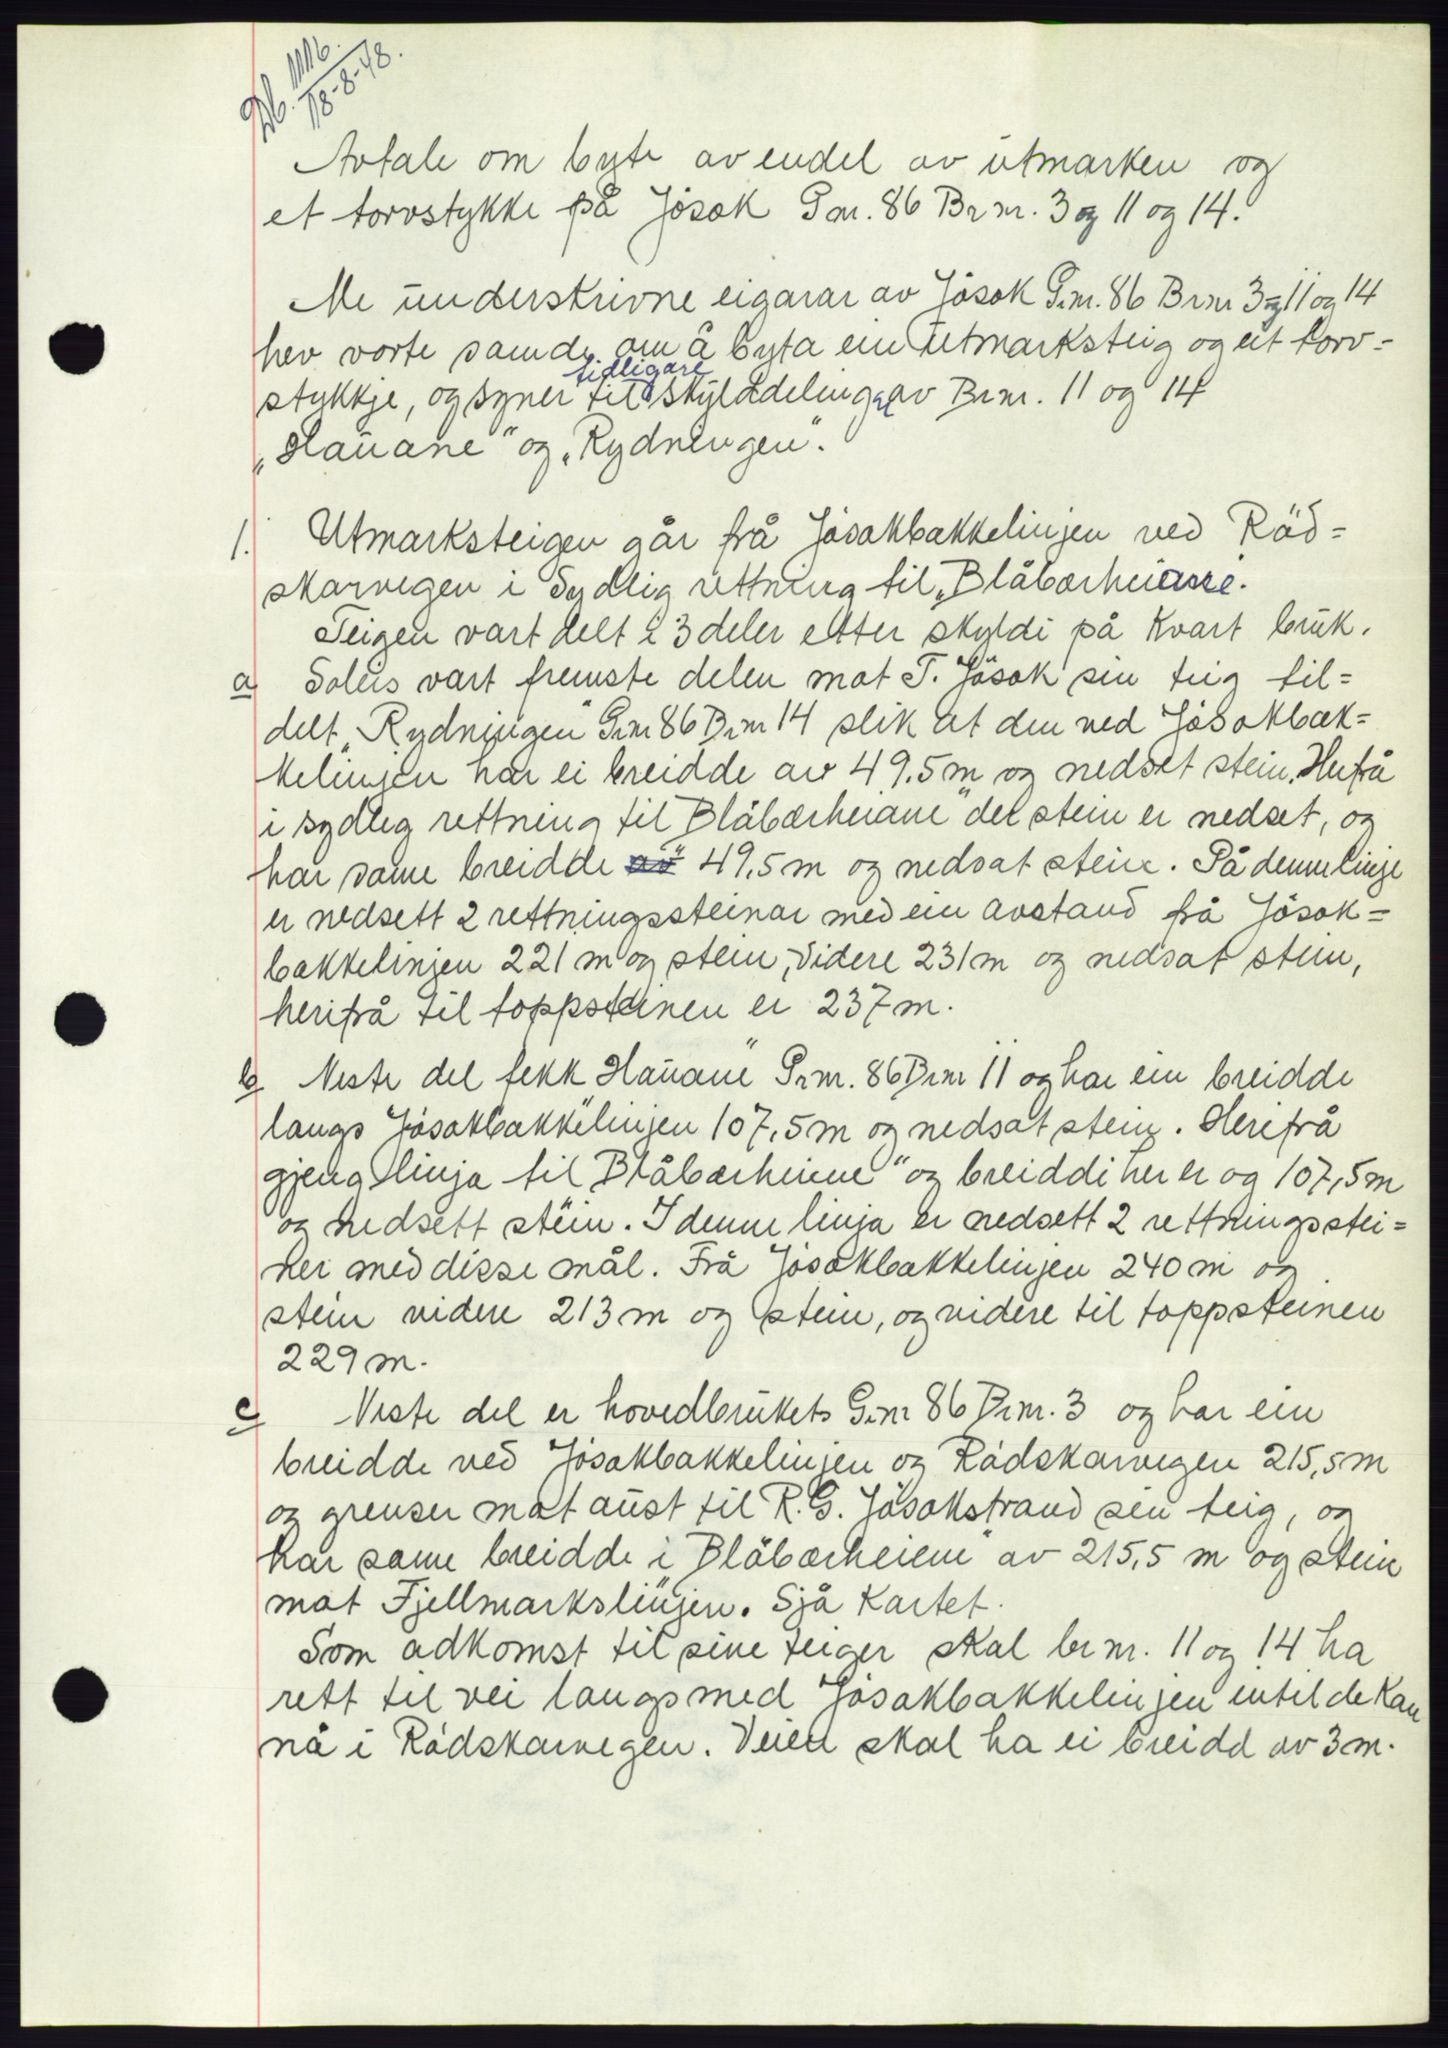 Db. 1116.
18-8-48.
Avtale om byte av endel av utmarken og
et torvstykke på Jøsok Gnr. 86 Br nr. 3 og 11 og 14.
Me underskrivne eigarar av Jøsok G.nr. 86 Br nr 3 og 11 og 14
hev vorte samde om å byta ein utmarksteig og eit torv=
stykkje, og syner til tidligare skylddelingar av Br nr. 11 og 14
„Hauane" og „Rydningen".
1. Utmarksteigen går frå Jøsokbakkelinjen ved Räd=
skarvegen i Sydlig rettning til „Blåbærheiane.
Teigen vart delt i 3 deler etter skyldi på Kvart bruk.
a Soleis vart fremste delen mot T. Jøsok sin teig til=
delt „Rydningen" G.nr 86 Br nr 14 slik at den ved Jøsokbak=
kelinjen har ei breidde av 49.5 m og nedsat stein. Herfrå
i sydleg rettning til „Blåbærheiane" der stein er nedset, og
har same breidde 49,5 m og nedsat stein. På denne linje
er nedsett 2 rettningssteinar med ein avstand frå Jøsok=
bakkelinjen 221 m og stein, videre 231 m og nedsat stein,
herifrå til toppsteinen er 237 m.
b Neste del fekk „Hauane" G.nr. 86 Br nr 11 og har ein breidde
langs Jøsokbakkelinjen 107,5 m og nedsat stein. Herifrå
gjeng linja til „Blåbærheiene" og breiddi her er og 107,5 m
og nedsett stein. I denne linja er nedsett 2 rettningsstei=
ner med disse mål. Frå Jøsokbakkelinjen 240 m og
stein videre 213 m og stein, og videre til toppsteinen
229 m.
c Neste del er hovedbrukets G.nr 86 Br nr. 3 og har ein
breidde ved Jøsokbakkelinjen og Rädskarvegen 215,5 m
og grenser mot aust til R. G. Jøsokstrand sin teig, og
har same breidde i „Blåbærheiene" av 215,5 m og stein
mot Fjellmarkslinjen. Sjå Kartet.
Som adkomst til sine teiger skal br nr. 11 og 14 ha
rett til vei langs med Jøsokbakkelinjen intil de Kan
nå i Rädskarvegen. Veien skal ha ei breidd av 3 m.